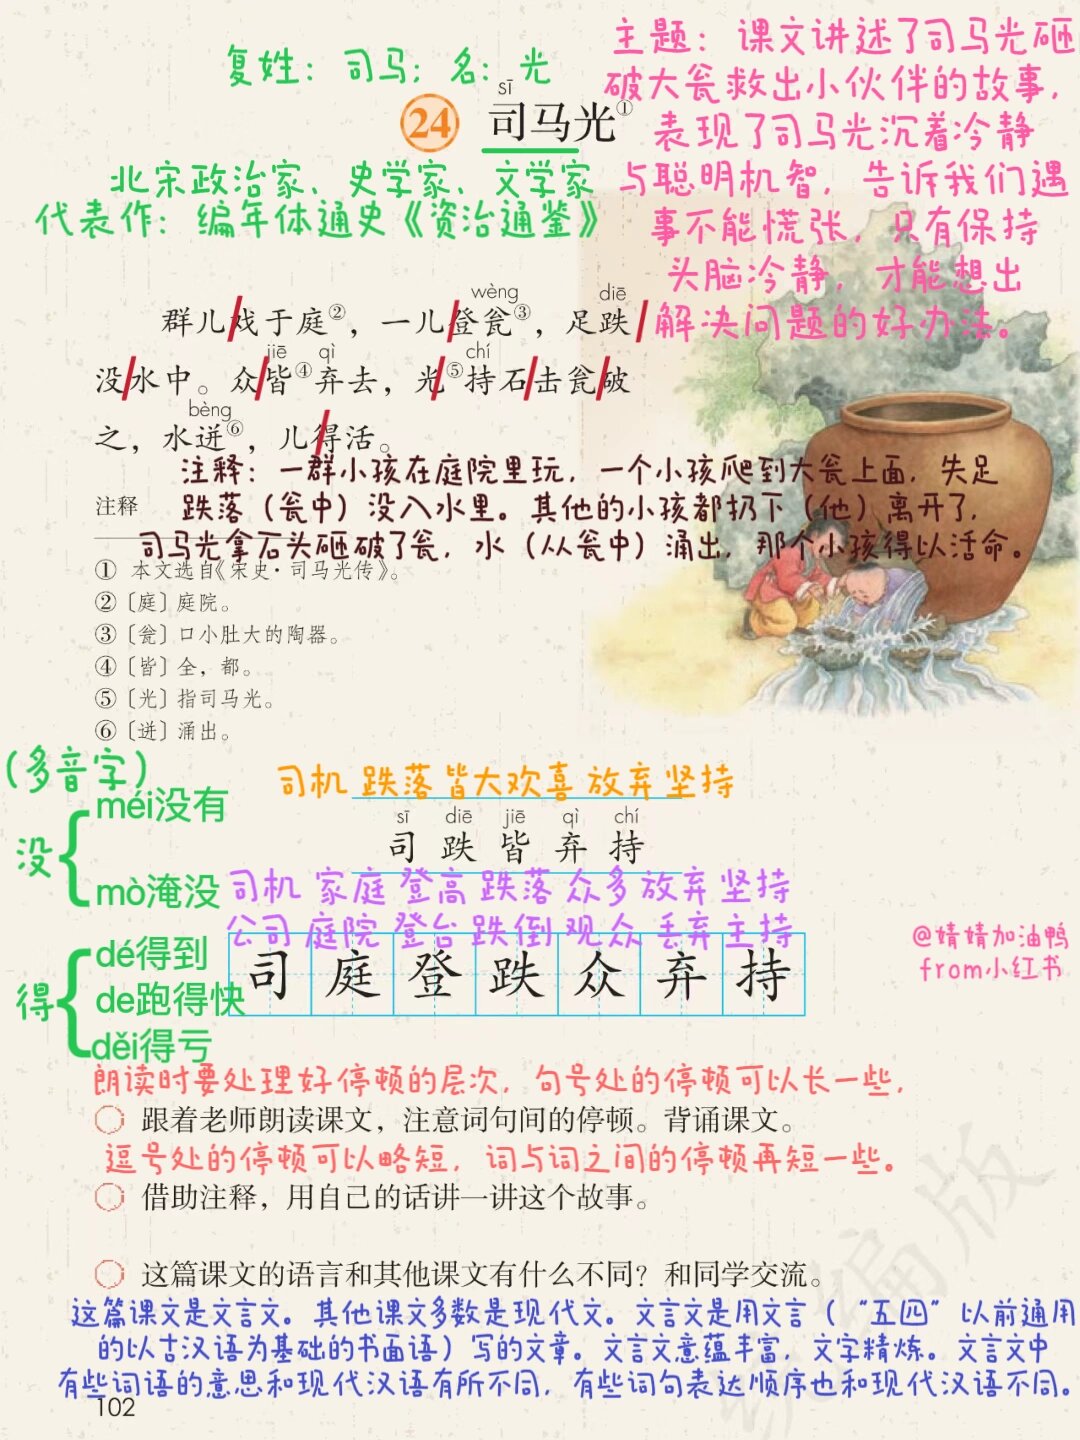 复姓：司马；名：光
主题：课文讲述了司马光砸
破大瓮救出小伙伴的故事，
表现了司马光沉着冷静
与聪明机智，告诉我们遇
事不能慌张，只有保持
头脑冷静，才能想出
解决问题的好办法。
sī
24 司马光①
北宋政治家、史学家、文学家
代表作：编年体通史《资治通鉴》
wèng diē
群儿/戏于庭②，一儿/登瓮③，足跌/
jiē qì chí
没/水中。众/皆④弃去，光/⑤持石/击瓮/破
bèng
之，水迸⑥，儿/得活。
注释：一群小孩在庭院里玩，一个小孩爬到大瓮上面，失足
跌落（瓮中）没入水里。其他的小孩都扔下（他）离开了，
司马光拿石头砸破了瓮，水（从瓮中）涌出，那个小孩得以活命。
注释
① 本文选自《宋史·司马光传》。
②〔庭〕庭院。
③〔瓮〕口小肚大的陶器。
④〔皆〕全，都。
⑤〔光〕指司马光。
⑥〔迸〕涌出。
（多音字）
没
méi没有
mò淹没
得
dé得到
de跑得快
děi得亏
司机 跌落 皆大欢喜 放弃 坚持
sī diē jiē qì chí
司 跌 皆 弃 持
司机 家庭 登高 跌落 众多 放弃 坚持
公司 庭院 登台 跌倒 观众 丢弃 主持
司 庭 登 跌 众 弃 持
@婧婧加油鸭
from小红书
朗读时要处理好停顿的层次，句号处的停顿可以长一些，
跟着老师朗读课文，注意词句间的停顿。背诵课文。
逗号处的停顿可以略短，词与词之间的停顿再短一些。
借助注释，用自己的话讲一讲这个故事。
这篇课文的语言和其他课文有什么不同？和同学交流。
这篇课文是文言文。其他课文多数是现代文。文言文是用文言（“五四”以前通用
的以古汉语为基础的书面语）写的文章。文言文意蕴丰富，文字精炼。文言文中
有些词语的意思和现代汉语有所不同，有些词句表达顺序也和现代汉语不同。
102
统编版